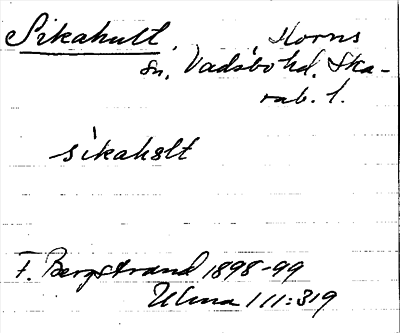 Sikahult. Horns
sn, Vadsbo hd. Ska-
rab. l.
sikahalt
F. Bergstrand 1898-99
Ulma 111:319